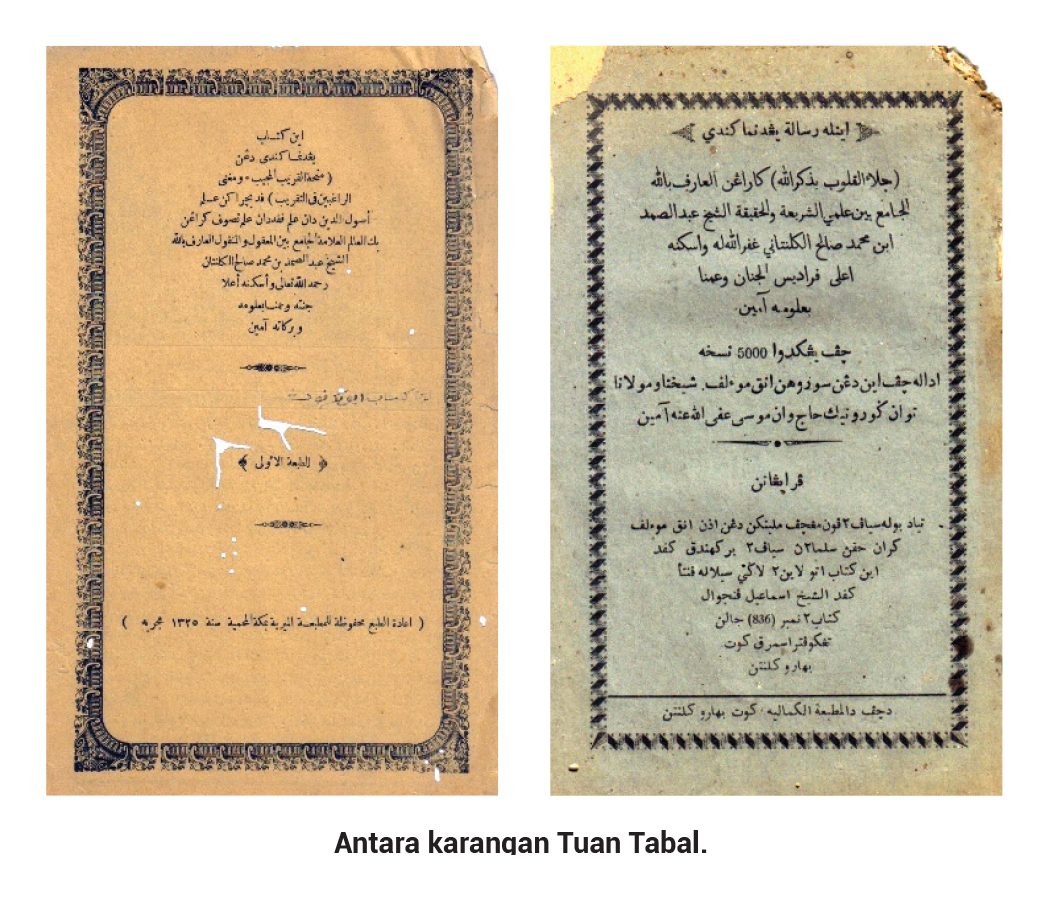 اين كتاب
يڠدنماكندى دڠن
( منحة القريب المجيب * ومغنى
الراغبين فى التقريب ) ڤد بچراكن علم
أصول الدين دان علم فقه دان علم تصوف كراڠن
بك العالم العلامة الجامع بين المعقول والمنقول العارف بالله
الشيخ عبد الصمد بن محمد صالح الكلنتان
رحمه الله تعالى وأسكنه أعلا
جنته ونفعنا بعلومه
وبركاته آمين
الطبعة الاولى
( اعادة الطبع محفوظة للمطبعة الميرية بمكة المحمية سنة ١٣٢٥ هجريه )
اينله رسالة يڠدنماكندي
(جلاء القلوب بذكر الله) كاراڠن العارف بالله
الجامع بين علمي الشريعة والحقيقة الشيخ عبد الصمد
ابن محمد صالح الكلنتاني غفر الله له واسكنه
اعلى فراديس الجنان وعمنا
بعلومه آمين.
چڤ يڠكدوا 5000 نسخه
اداله چڤ اين دڠن سوروهن انق موءلف. شيخنا ومولانا
توان ڬورو تيك حاج وان موسى عفى الله عنه آمين
ڤرايڠاتن
تياد بوله سياڤ٢ ڤون مڠچڤ ملينكن دڠن اذن انق موءلف
كران حقن سلما٢ن سياڤ٢ بركهندق كڤد
اين كتاب اتو لاين٢ لاكي سيلاله ڤنتا
كڤد الشيخ اسماعيل ڤنجوال
كتاب٢ نمبر (836) جالن
تڠكو ڤتراسمرق كوت
بهارو كلنتن
دچڤ دالمطبعة الكماليه. كوت بهارو كلنتن
Antara karangan Tuan Tabal.